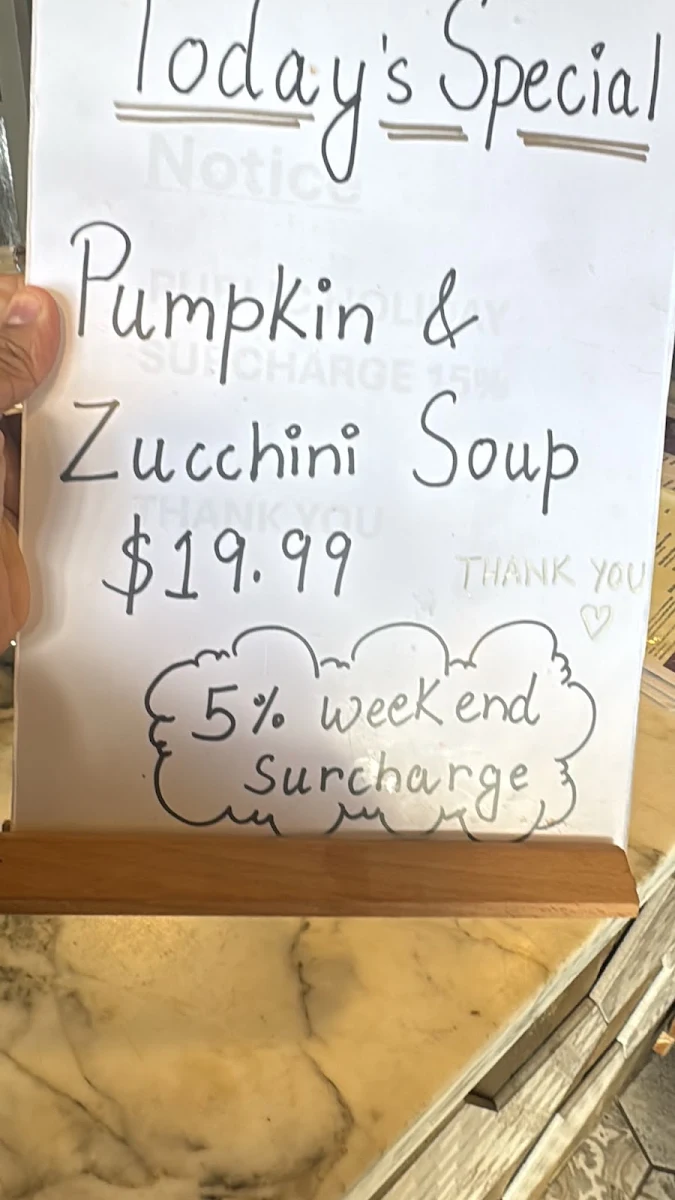 Today's Special
Notice
Pumpkin &
PUBLIC HOLIDAY
SURCHARGE 15%
Zucchini Soup
THANK YOU
$19.99
THANK YOU
5% weekend
Surcharge